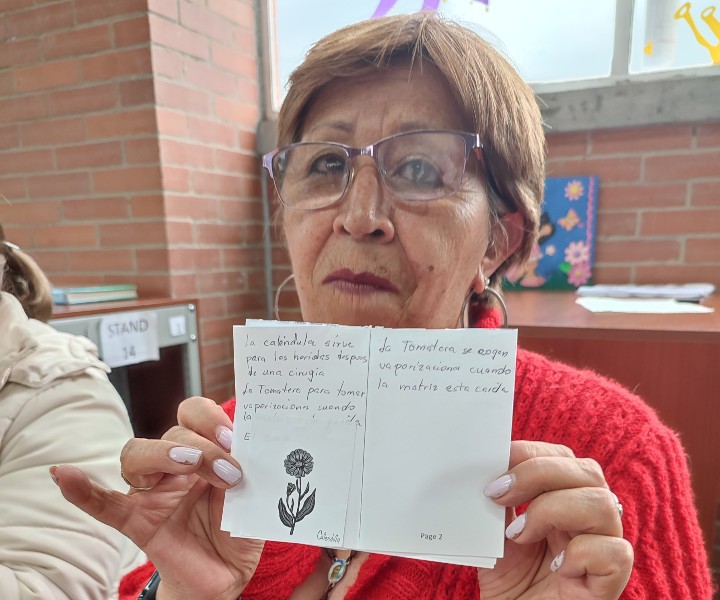 STAND
14
1
La caléndula sirve
para las heridas despues
de una cirugia
La Tomatera para tomar
vaporizaciona cuando
la
E
Caléndula
La Tomatera se acgen
vaporizaciona cuando
la matriz esta caida
Page 2